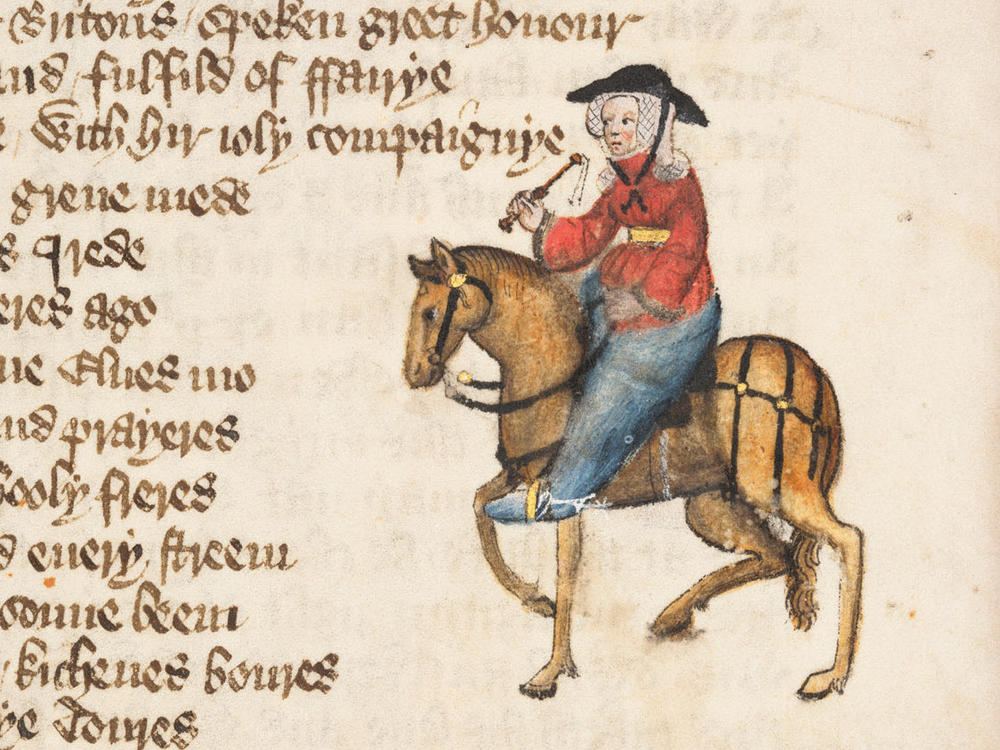 Britons speken greet honour
fulfild of ffairye
With hir ioly compaignye
grene mede
rede
ago
Elues mo
prayeres
hooly freres
euery streem
sonne beem
kichenes boures
Toures